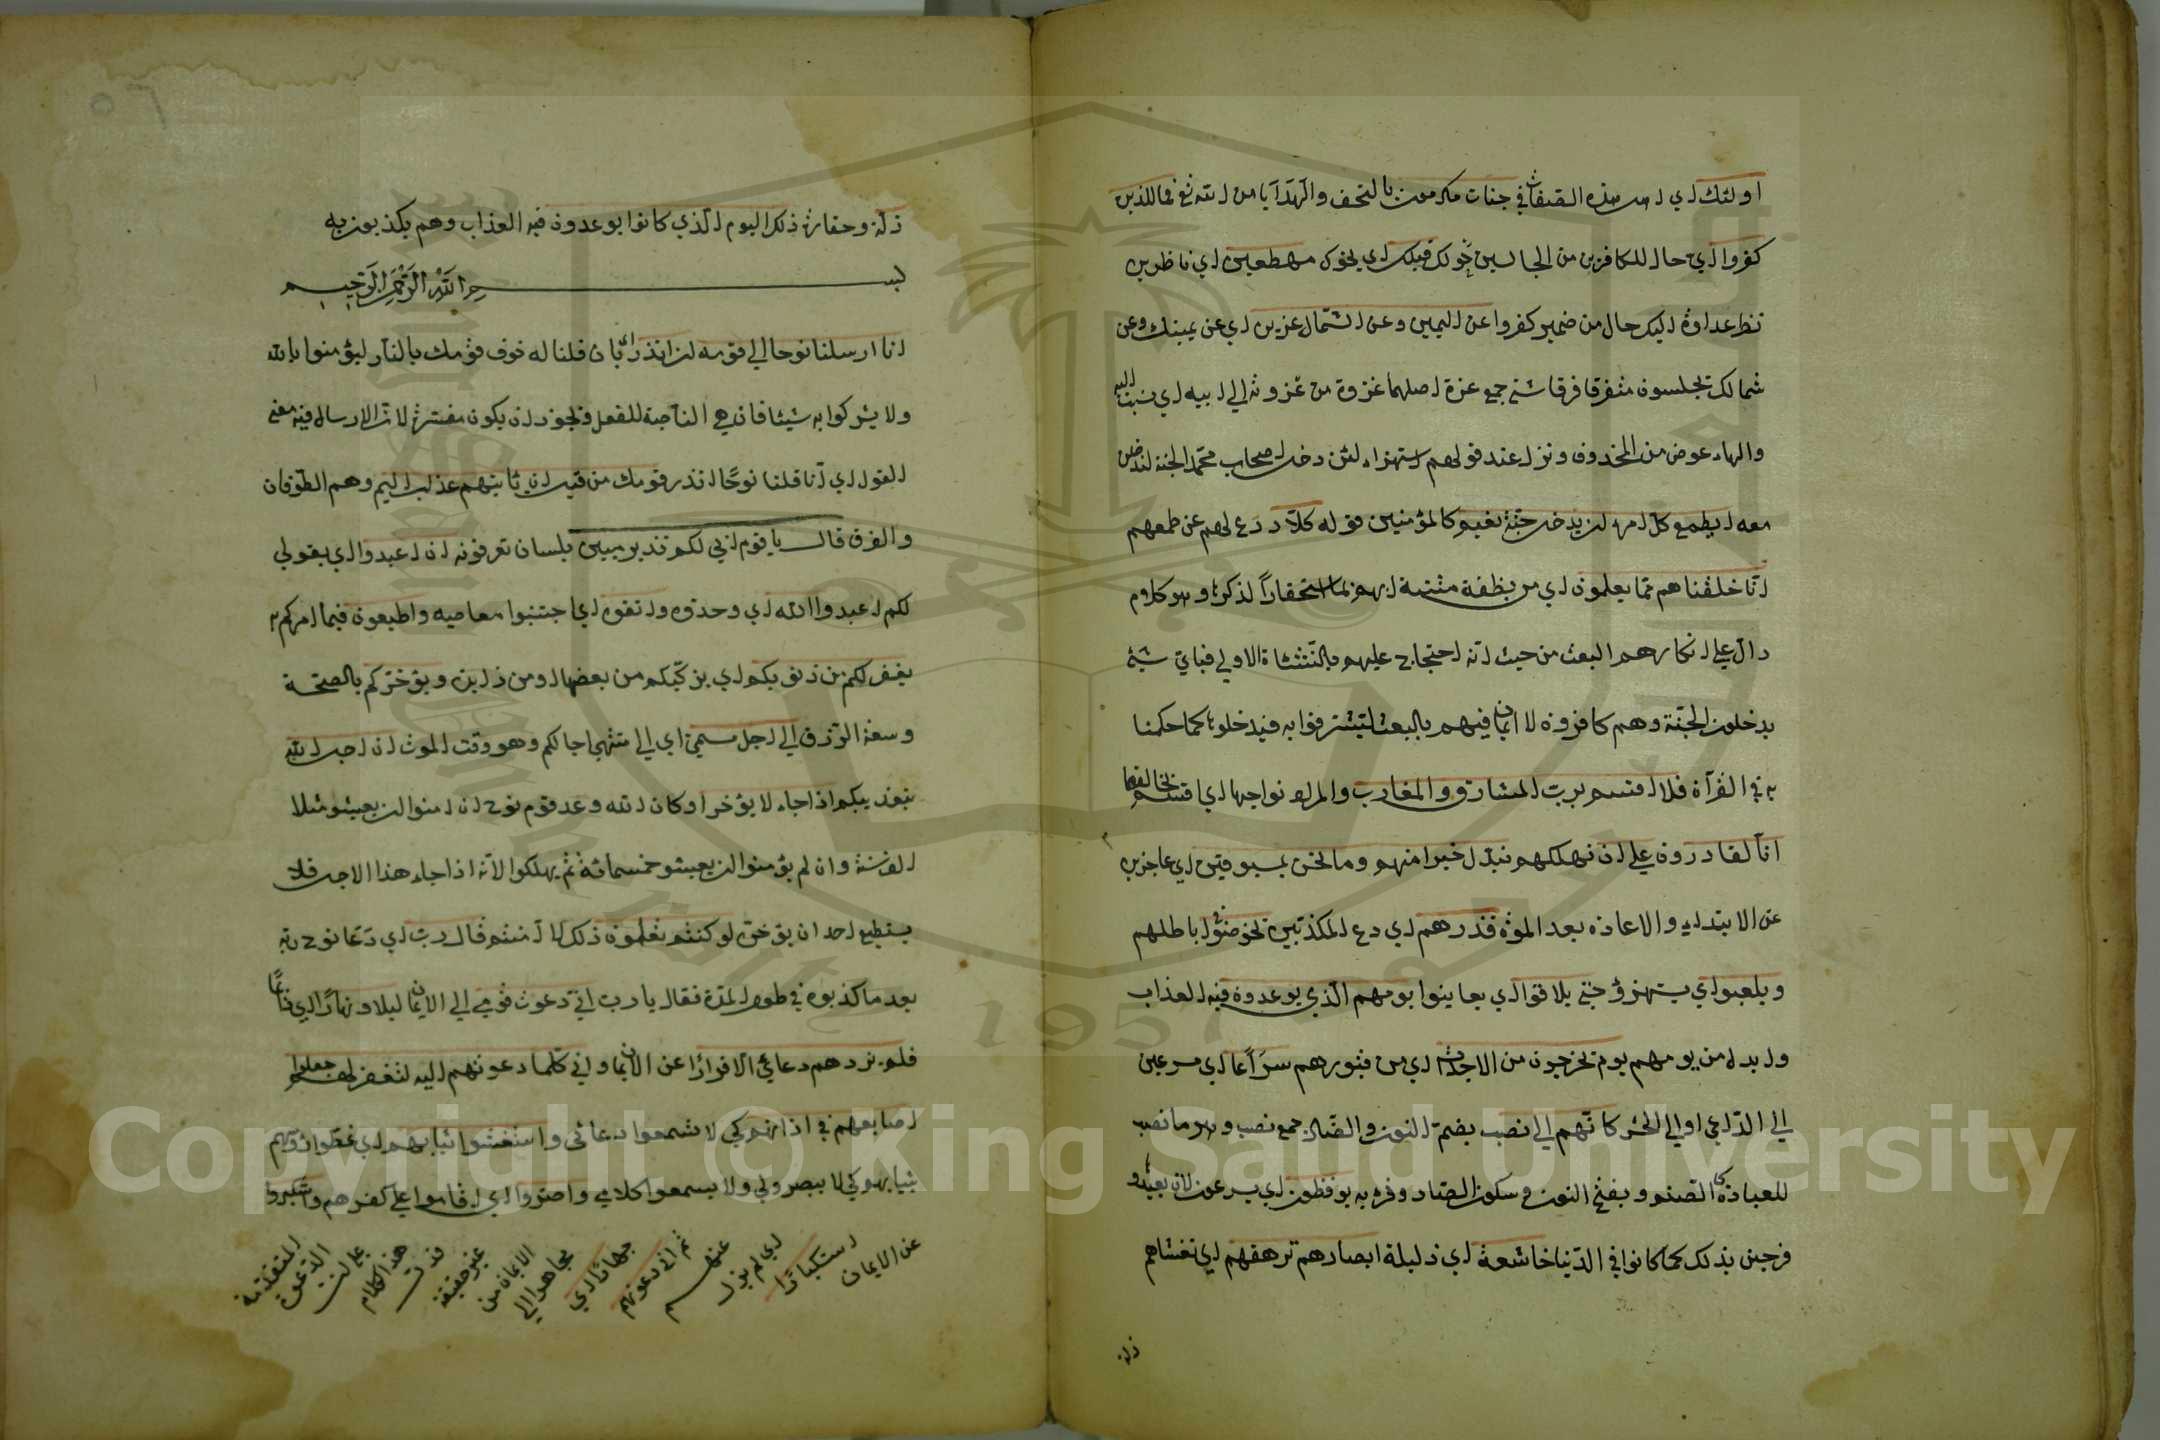 اولئك اي اهل هذه الصفات في جنات مكرمون بالتحف والهدايا من الله تع فما للذين
كفروا اي حال للكافرين من الجالسين حولك قبلك اي نحوك مهطعين اي ناظرين
نظر عداوة اليك حال من ضمير كفروا عن اليمين وعن الشمال عزين اي عن يمينك وعن
شمالك يجلسون متفرقا فرقا شتى جمع عزة اصلها عزوة من عزوته الى ابيه اي نسبته اليه
والهاء عوض من المحذوف ونزل عند قولهم استهزاء لئن دخل اصحاب محمد الجنة لندخلن
معه ايطمع كل امرء ان يدخل جنة نعيم كالمؤمنين قوله كلا ردع لهم عن طمعهم
انا خلقناهم مما يعلمون اي من نطفة منتنة استحقارا لذكرها وهو كلام
دال على انكارهم البعث من حيث انه احتجاج عليهم بالنشئاة الاولى فباي شئ
يدخلون الجنة وهم كافرون لا ايمان فيهم بالبعث ليتشرفوا به فيدخلوها كما حكمنا
به في القرآن فلا اقسم برب المشارق والمغارب والمراد نواحيها اي اقسم بخالقها
انا لقادرون على ان نهلكهم نبدل خيرا منهم وما نحن بمسبوقين اي عاجزين
عن الابتداء والاعادة بعد الموت فذرهم اي دع المكذبين يخوضوا في اباطلهم
ويلعبوا اي يستهزؤ حتى يلاقوا اي يعاينوا يومهم الذي يوعدون فيه العذاب
وابدل من يومهم يوم يخرجون من الاجداث اي من قبورهم سراعا اي مسرعين
الى الداعي او الى الحشر كانهم الى نصب بضم النون والصاد جمع نصب وهو ما نصب
للعبادة كالصنم وبفتح النون وسكون الصاد وقرء به يوفضون اي يسرعون لان يعبدو
فرحين بذلك كما كانوا في الدنيا خاشعة اي ذليلة ابصارهم ترهقهم اي تغشاهم
ذلة
ذلة وحقارة ذلك اليوم الذي كانوا يوعدون فيه العذاب وهم يكذبون به
بسم الله الرحمن الرحيم
انا ارسلنا نوحا الى قومه ان انذر اي بان قلنا له خوف قومك بالنار ليؤمنوا بالله
ولا يشركوا به شيئا فان هي الناصبة للفعل ويجوز ان يكون مفسرة لان الارسال فيه معنى
القول اي انا قلنا نوحا انذر قومك من قبل ان ياتيهم عذاب اليم وهم الطوفان
والغرق قال يا قوم اني لكم نذير مبين بلسان تعرفونه ان اعبدوا اي بقولي
لكم اعبدوا الله اي وحدوه واتقوه اي اجتنبوا معاصيه واطيعون فيما امركم به
يغفر لكم من ذنوبكم اي يزكيكم من بعضها ومن زاين ويؤخركم بالصحة
وسعة الرزق الى اجل مسمى اي الى منتهى اجالكم وهو وقت الموت ان اجل الله
بتعذيبكم اذا جاء لا يؤخر او كان الله وعد قوم نوح ان امنوا ان يعيشو مثلا
الف سنة وان لم يؤمنوا ان يعيشو خمسمائة ثم يهلكوا لانه اذا جاء هذا الاجل فلا
يستطيع احد ان يؤخره لو كنتم تعلمون ذلك لا امنتم قال رب اي دعا نوح ربه
بعد ما كذبوه في طول المدة فقال يا رب اني دعوت قومي الى الايمان ليلا ونهارا اي دائما
فلم يزدهم دعائي الا فرارا عن الايمان واني كلما دعوتهم اليه لتغفر لهم جعلوا
اصابعهم في اذانهم كي لا يسمعوا دعائى واستغشوا ثيابهم اي غطوا رؤسهم
بثيابهم كي لا يبصروني ولا يسمعوا كلامى واصروا اي اقاموا على كفرهم واستكبروا
عن الايمان
استكبارا
اي لم يزل
عنهم
ثم اني دعوتهم
جهارا اي
مجاهرا الى
الايمان من
غير خفية
هذا الكلام
على
الدعوة
المتقدمة